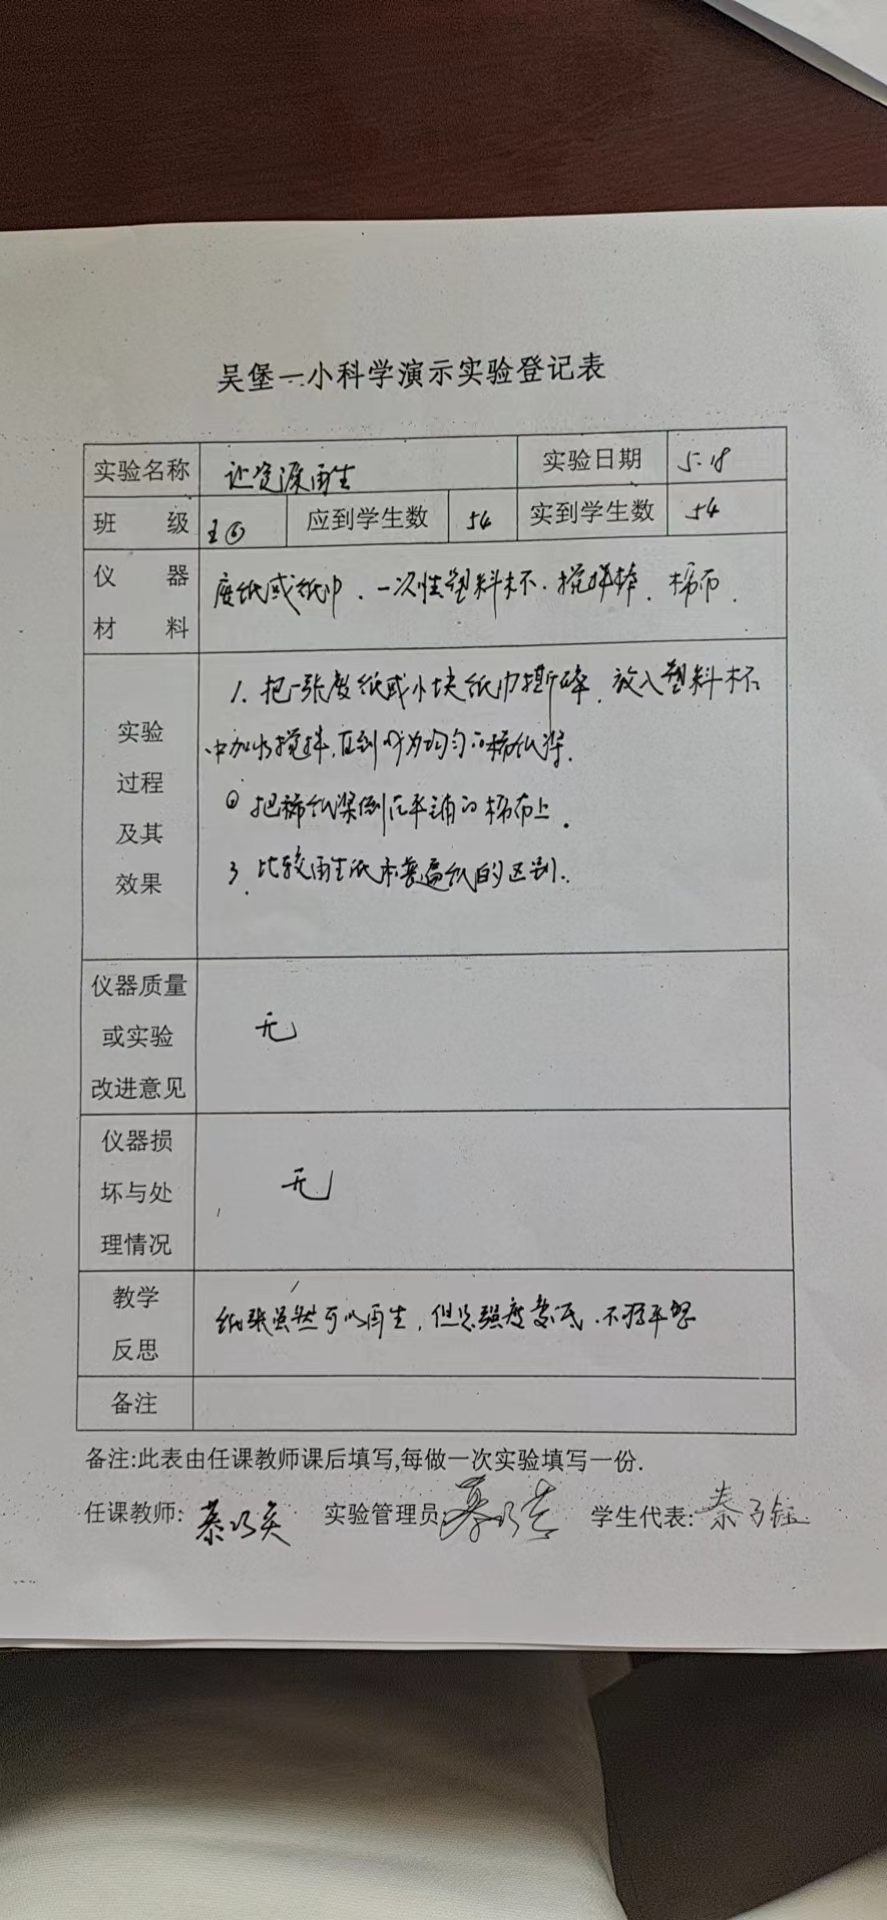 吴堡一小科学演示实验登记表
实验名称 让资源再生 实验日期 5.18
班 级 五⑥ 应到学生数 54 实到学生数 54
仪 器
材 料
废纸或纸巾、一次性塑料杯、搅拌棒、棉布.
实验
过程
及其
效果
1. 把一张废纸或小块纸巾撕碎、放入塑料杯
中加水搅拌,直到成为均匀的稀纸浆.
② 把稀纸浆倒在平铺的棉布上.
3. 比较再生纸和普通纸的区别.
仪器质量
或实验
改进意见
无
仪器损
坏与处
理情况
无
教学
反思
纸张虽然可以再生,但是强度
备注
备注:此表由任课教师课后填写,每做一次实验填写一份.
任课教师: 实验管理员: 学生代表:秦子钰